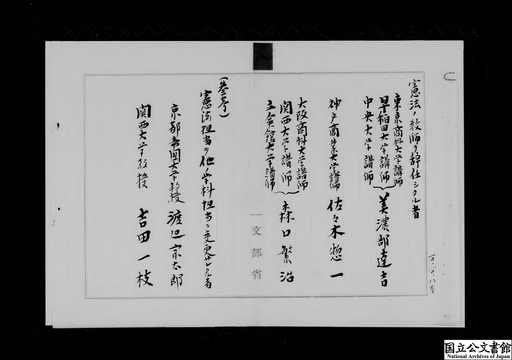 憲法ノ教師ヲ辞任シタル者
東京商科大学講師
早稲田大学講師
中央大学講師
美濃部達吉
神戸商業大学講師 佐々木惣一
大阪商科大学講師
関西大学講師
立命館大学講師
森口繁治
(参考)
憲法担当ヲ他学科担当ニ変更セラレタル者
京都帝国大学教授 渡辺宗太郎
関西大学教授 吉田一枝
文部省
国立公文書館
National Archives of Japan